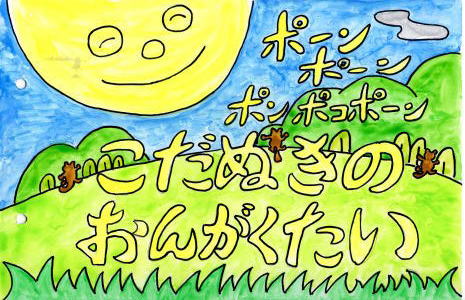 ポーン
ポーン
ポンポコポーン
こだぬきの
おんがくたい